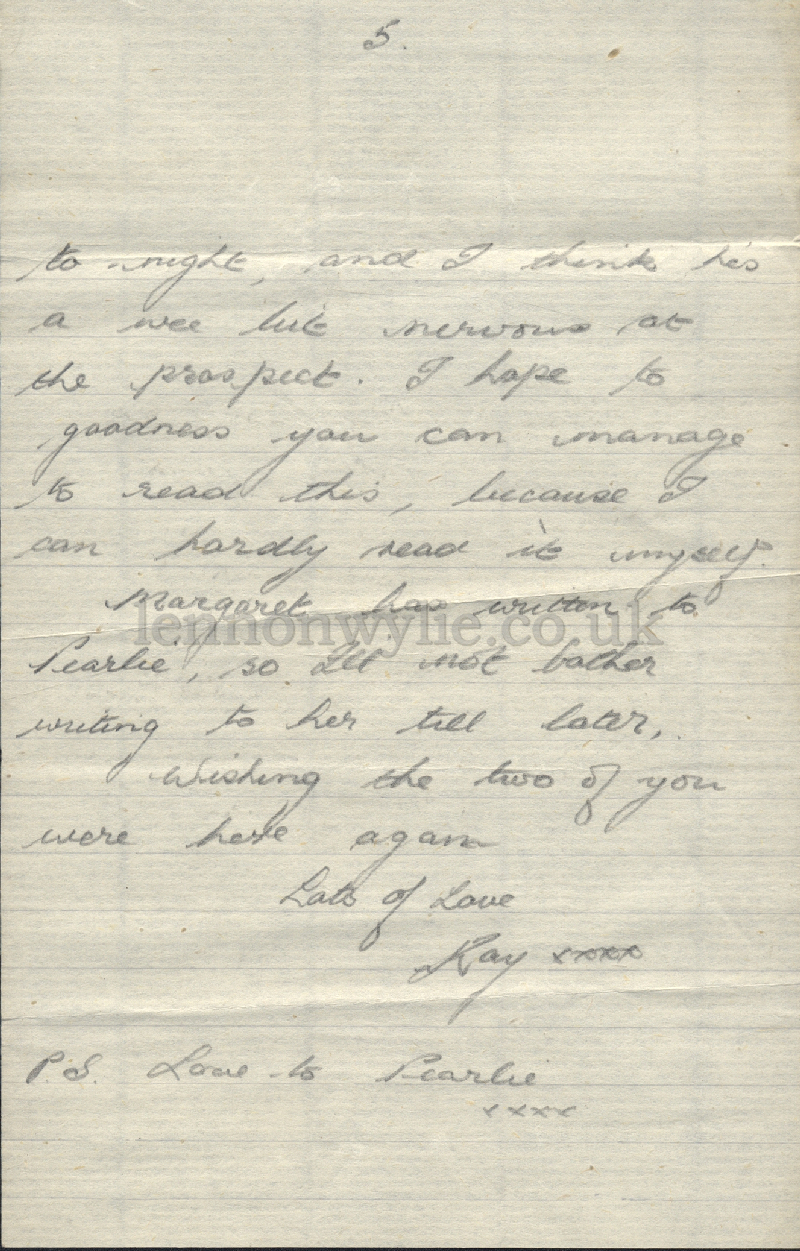 5.
to-night, and I think he's
a wee bit nervous at
the prospect. I hope to
goodness you can manage
to read this, because I
can hardly read it myself.
Margaret has written to
lennonwylie.co.uk
Pearlie, so I'll not bother
writing to her till later.
Wishing the two of you
were here again
Lots of Love
Kay xxxx
P.S. Love to Pearlie
xxxx